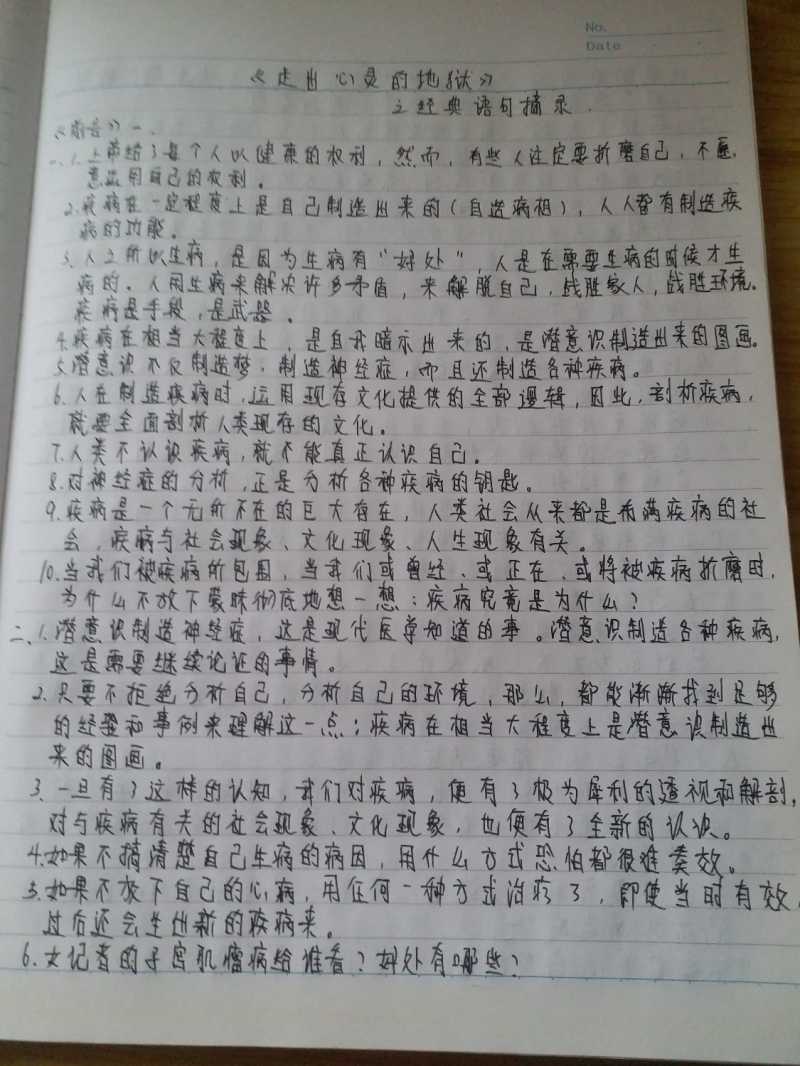 No.
Date
《走出心灵的地狱》
之经典语句摘录.
《前言》一、
一、1.上帝给了每个人以健康的权利，然而，有些人注定要折磨自己，不愿
意运用自己的权利。
2.疾病在一定程度上是自己制造出来的(自造病相)，人人皆有制造疾
病的功能。
3.人之所以生病，是因为生病有"好处"，人是在需要生病的时候才生
病的。人用生病来解决许多矛盾，来解脱自己，战胜家人，战胜环境。
疾病是手段，是武器。
4.疾病在相当大程度上，是自我暗示出来的，是潜意识制造出来的图画。
5.潜意识不仅制造梦，制造神经症，而且还制造各种疾病。
6.人在制造疾病时，运用现存文化提供的全部逻辑，因此，剖析疾病，
就要全面剖析人类现存的文化。
7.人类不认识疾病，就不能真正认识自己。
8.对神经症的分析，正是分析各种疾病的钥匙。
9.疾病是一个无所不在的巨大存在，人类社会从来都是布满疾病的社
会，疾病与社会现象、文化现象、人生现象有关。
10.当我们被疾病所包围，当我们或曾经、或正在、或将被疾病折磨时，
为什么不放下暧昧彻底地想一想：疾病究竟是为什么？
二、1.潜意识制造神经症，这是现代医学知道的事。潜意识制造各种疾病，
这是需要继续论证的事情。
2.只要不拒绝分析自己，分析自己的环境，那么，都能渐渐找到足够
的经验和事例来理解这一点：疾病在相当大程度上是潜意识制造出
来的图画。
3、一旦有了这样的认知，我们对疾病，便有了极为犀利的透视和解剖，
对与疾病有关的社会现象、文化现象，也便有了全新的认识。
4.如果不搞清楚自己生病的病因，用什么方式恐怕都很难奏效。
5.如果不放下自己的心病，用任何一种方式治疗了，即使当时有效，
过后还会生出新的疾病来。
6.女记者的子宫肌瘤病给谁看？好处有哪些？